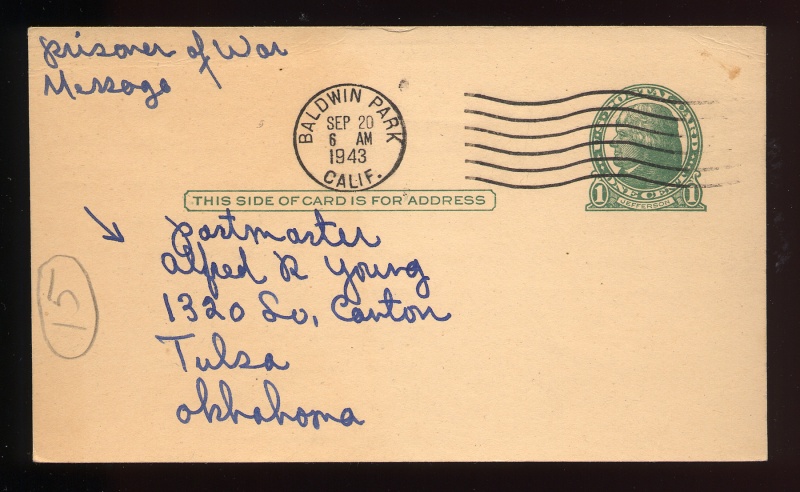 prisoner of War
Message
BALDWIN PARK
SEP 20
6 AM
1943
CALIF.
U.S. POSTAL CARD
ONE CENT
1 JEFFERSON 1
THIS SIDE OF CARD IS FOR ADDRESS
postmaster
Alfred R Young
1320 So, Canton
Tulsa
Oklahoma
15